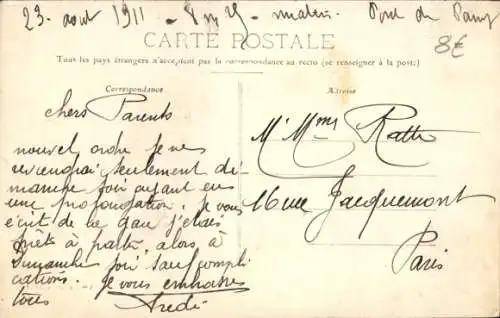 23. aout 1911 - 8 m 25 - matin. Pont de
8€
CARTE POSTALE
Tous les pays étrangers n'acceptent pas la correspondance au recto (se renseigner à la poste)
Correspondance
chers Parents
nouvel ordre je ne
reviendrai seulement di-
manche soir ayant eu
une prolongation. je vous
écrit de ce que j'étais
prêts à partir, alors à
Dimanche soir sauf compli
cations. je vous embrasse
tous
Adresse
Mr Mme Ratte
16 rue Jacquemont
Paris